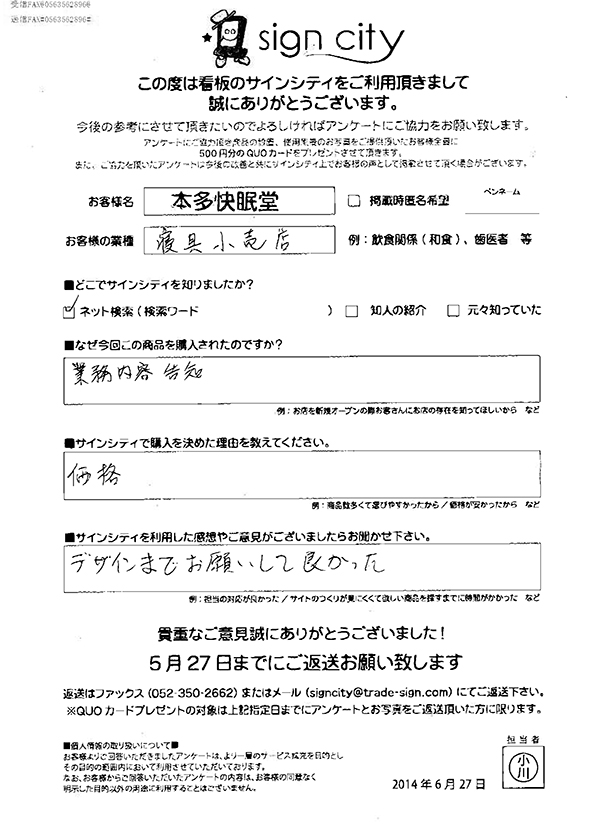 受信FAX#0563562896#
送信FAX#0563562896#
sign city
この度は看板のサインシティをご利用頂きまして
誠にありがとうございます。
今後の参考にさせて頂きたいのでよろしければアンケートにご協力をお願い致します。
アンケートにご協力頂き商品の設置、使用業務のお写真をご提供頂いたお客様全員に
500円分のQUOカードをプレゼントさせて頂きます。
また、ご協力を頂いたアンケートは今後の改善と共にサインシティ上でお客様の声として掲載させて頂く場合がございます。
お客様名 本多快眠堂 □ 掲載時匿名希望 ペンネーム
お客様の業種 寝具小売店 例：飲食関係（和食）、歯医者 等
■どこでサインシティを知りましたか？
☑ ネット検索（検索ワード ） □ 知人の紹介 □ 元々知っていた
■なぜ今回この商品を購入されたのですか？
業務内容 告知
例：お店を新規オープンの際お客さんにお店の存在を知ってほしいから など
■サインシティで購入を決めた理由を教えてください。
価格
例：商品数多くて選びやすかったから／価格が安かったから など
■サインシティを利用した感想やご意見がございましたらお聞かせ下さい。
デザインまでお願いして良かった
例：担当の対応が良かった／サイトのつくりが見にくくて欲しい商品を探すまでに時間がかかった など
貴重なご意見誠にありがとうございました！
5月27日までにご返送お願い致します
返送はファックス（052-350-2662）またはメール（signcity@trade-sign.com）にてご返送下さい。
※QUOカードプレゼントの対象は上記指定日までにアンケートとお写真をご返送頂いた方に限ります。
■個人情報の取り扱いについて■
お客様よりご回答いただきましたアンケートは、より一層のサービス拡充を目的とし
その目的の範囲内において利用させていただいております。
なお、お客様からご回答いただいたアンケートの内容は、お客様の同意なく
明示した目的以外の用途に利用することはございません。
担当者
小川
2014年6月27日